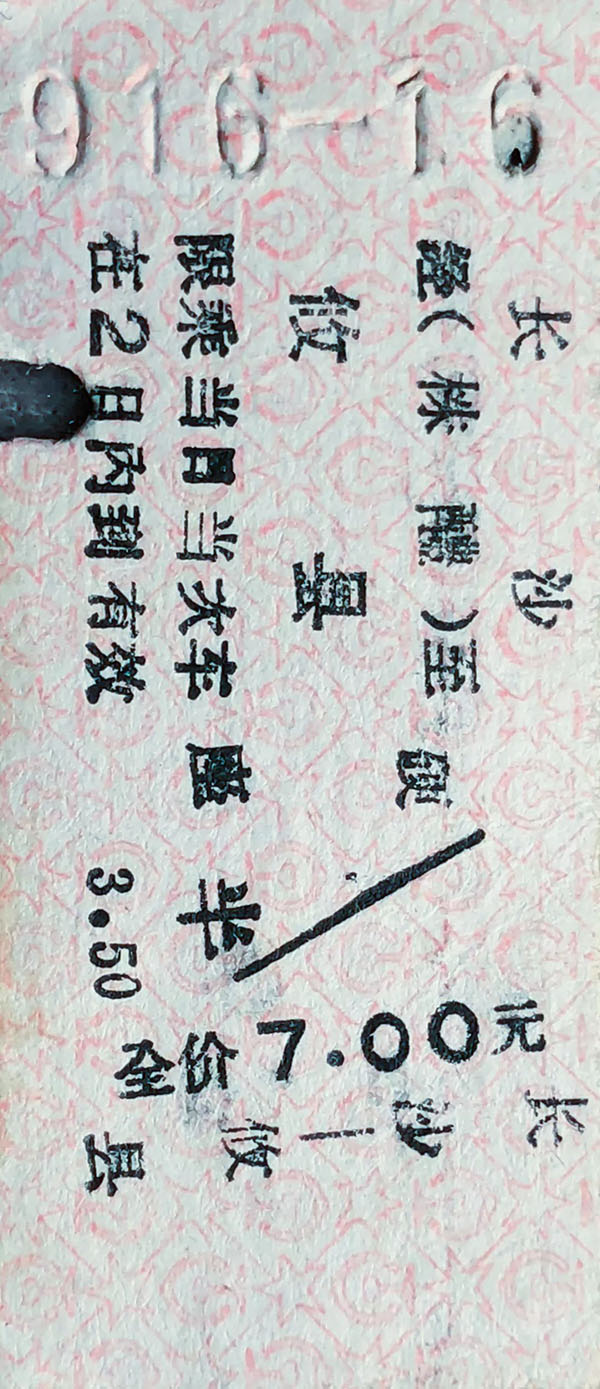 长沙
经(株醴)至
攸县
限乘当日当次车
在2日内到有效
硬座
半
3.50
全价7.00元
长沙—攸县
916-16